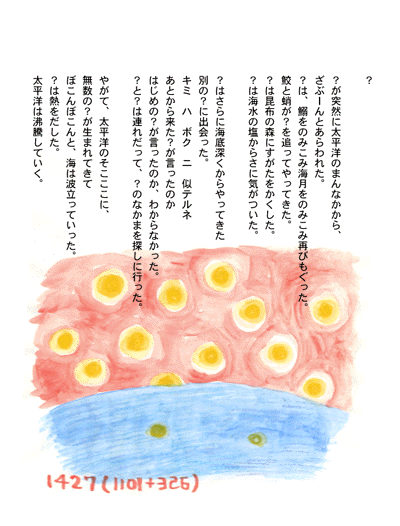 ?
?が突然に太平洋のまんなかから、
ざぶーんとあらわれた。
?は、鰯をのみこみ海月をのみこみ再びもぐった。
鮫と蛸が?を追ってやってきた。
?は昆布の森にすがたをかくした。
?は海水の塩からさに気がついた。
?はさらに海底深くからやってきた
別の?に出会った。
キミ ハ ボク ニ 似テルネ
あとから来た?が言ったのか
はじめの?が言ったのか、わからなかった。
?と?は連れだって、?のなかまを探しに行った。
やがて、太平洋のそこここに、
無数の?が生まれてきて
ぼこんぼこんと、海は波立っていった。
?は熱をだした。
太平洋は沸騰していく。
1427(1101+326)